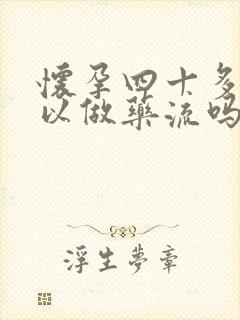 懷孕四十多
以做藥流嗎
浮生夢章